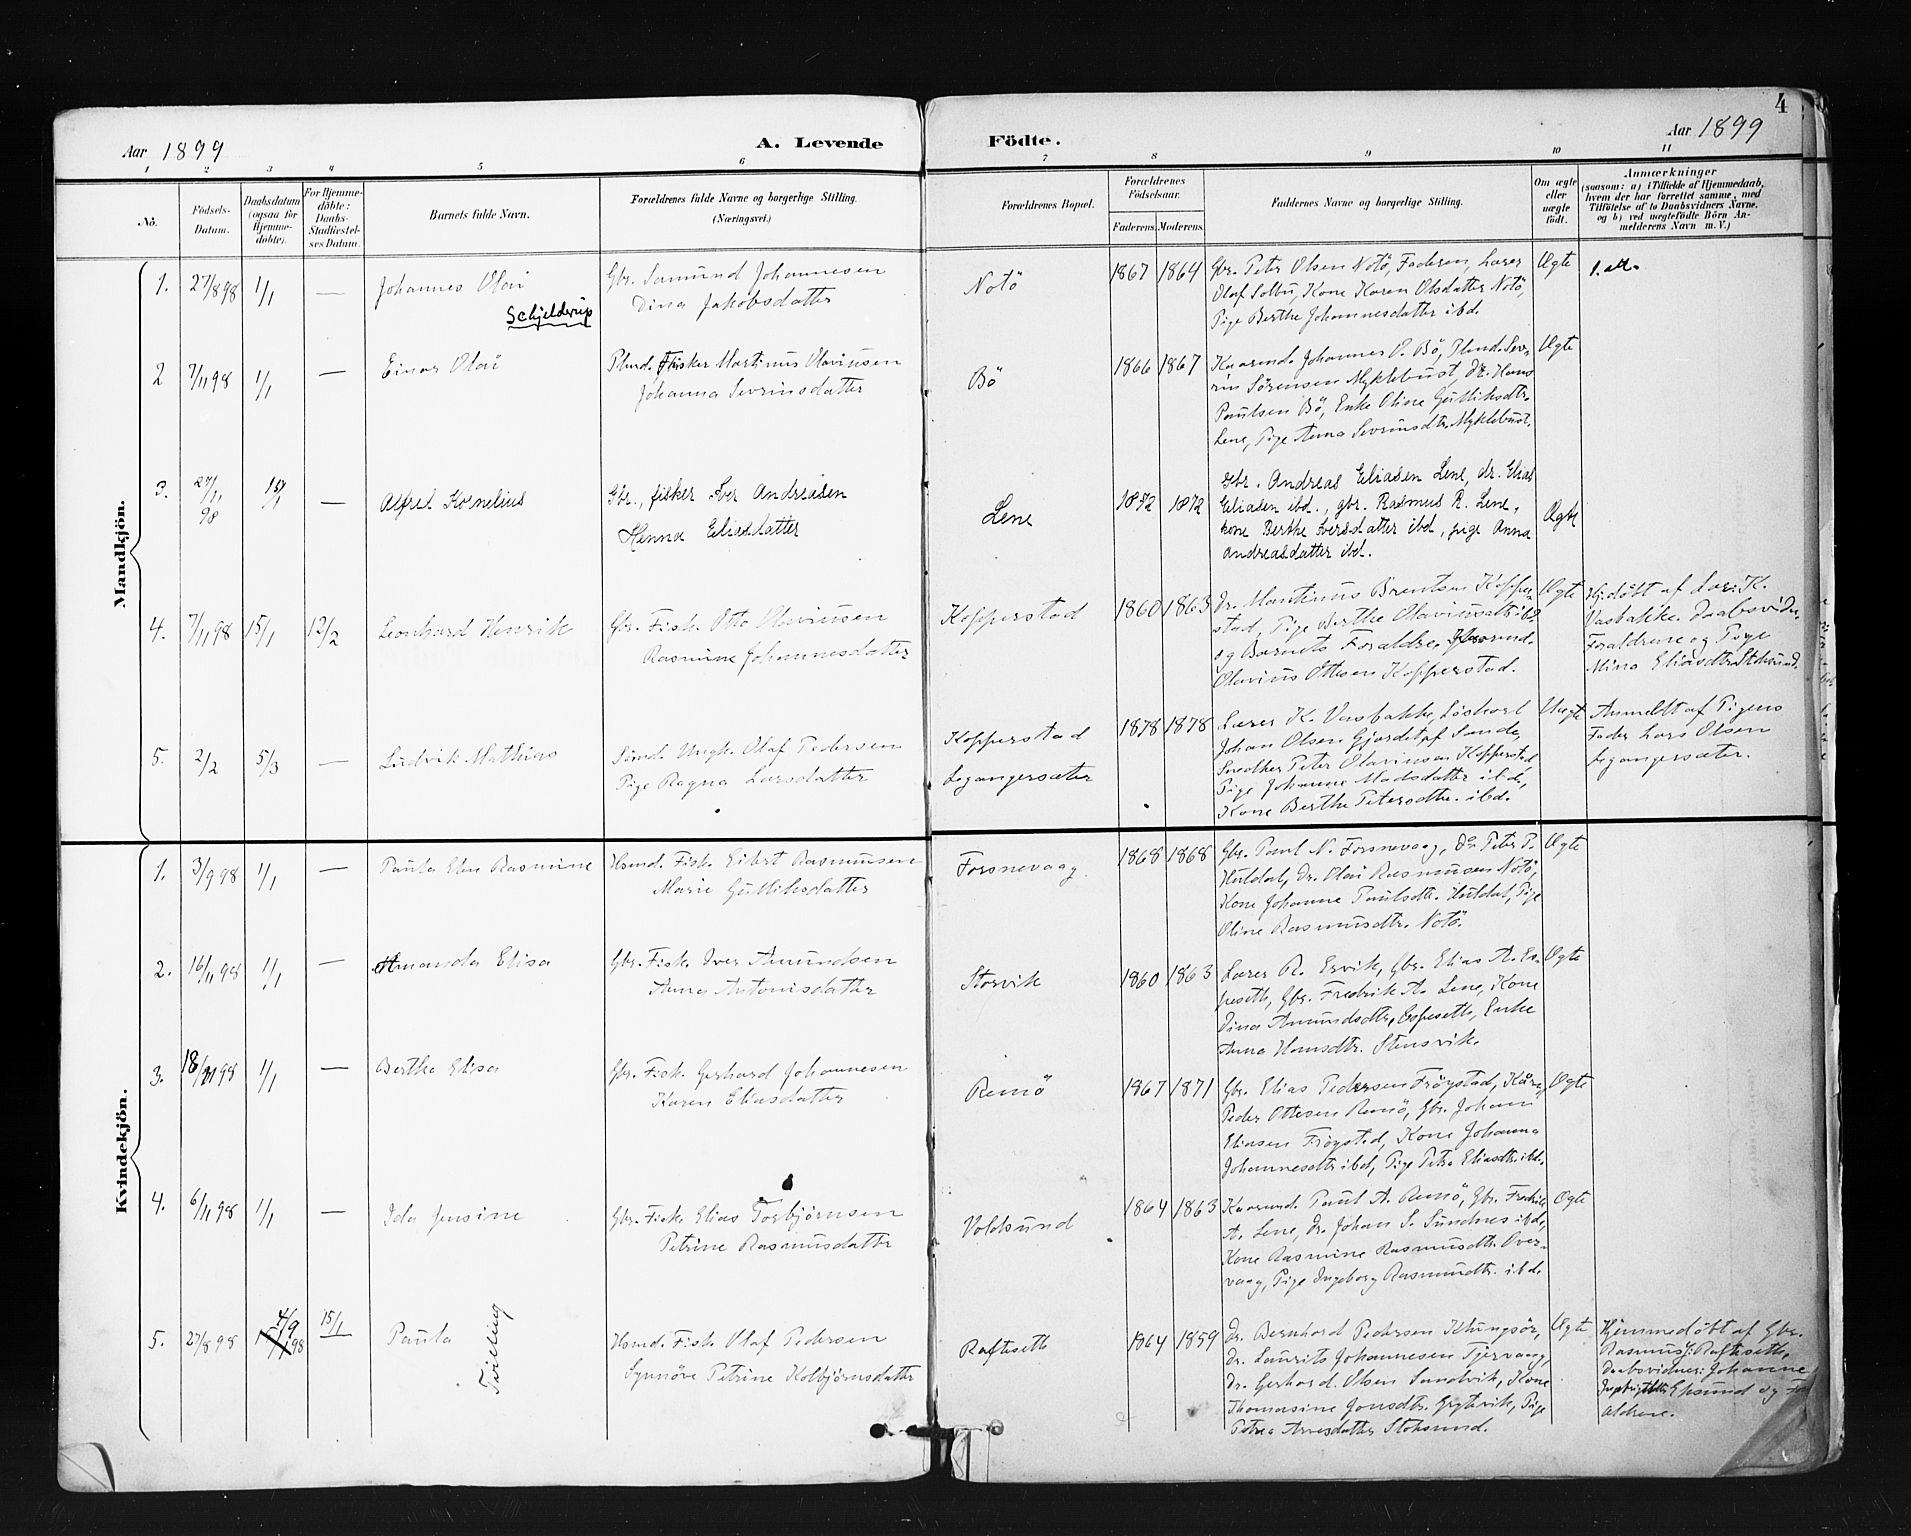 4
Aar 1899
A. Levende
Födte.
Aar 1899
1 2 3 4 5 6 7 8 9 10 11
Nö.
Födsels-
Datum.
Daabsdatum
(ogsaa for
Hjemme-
döbte).
For Hjemme-
döbte:
Daabs-
Stadfæstel-
ses Datum.
Barnets fulde Navn.
Forældrenes fulde Navne og borgerlige Stilling.
(Næringsvei.)
Forældrenes Bopæl.
Forældrenes
Födselsaar.
Faderens. Moderens.
Faddernes Navne og borgerlige Stilling.
Om ægte
eller
uægte
födt.
Anmærkninger
(saasom: a) i Tilfælde af Hjemmedaab,
hvem der har forrettet samme, med
Tilföielse af to Daabsvidners Navne.
og b) ved uegtefödte Börn An-
melderens Navn m. V.)
Mandkjön.
1. 27/8 98 1/1 —
Johannes Olai
Schjelderup
Gbr. Samund Johannesen
Dina Jakobsdatter
Notö
1867 1864
Gbr. Peter Olsen Notö, Faderen, Lærer
Olaf Solbu, Kone Karen Olsdatter Notö,
Pige Berthe Johannesdatter ibd.
Ægte
1. att.
2 7/11 98 1/1 —
Einar Olai
Plmd. Fisker Martinus Olaviusen
Johanna Sevrinsdatter
Bö
1866 1867
Kaarmd. Johannes O. Bö, Plmd. Sev-
rin Sörensen Myklebust, dr. Hans
Paulsen Bö, Enke Oline Gulliksdtr.
Lene, Pige Anna Sevrinsdtr. Myklebust.
Ægte
3. 27/11 98 15/1 —
Alfred Kornelius
Gbr., fisker Iver Andreasen
Henna Eliasdatter
Lene
1872 1872
Gbr. Andreas Eliasen Lene, dr. Elias
Eliasen ibd., gbr. Rasmus R. Lene,
kone Berthe Iversdatter ibd, pige Anna
Andreasdatter ibd.
Ægte
4. 7/11 98 15/1 12/2
Leonhard Henrik
Gbr. Fisk. Otto Olaviusen
Rasmine Johannesdatter
Kopperstad
1860 1863
dr. Martinus Berntsen Kopper-
stad, Pige Berthe Olaviusdtr ibd
og Barnets Foraldre, Kaarmd.
Olavius Ottesen Kopperstad.
Ægte
Hjdöbt af Lær. K.
Vasbakke. Daabsvidn.
Foraldrene og Pige
Mina Eliasdtr. Stoksund.
5. 2/2 5/3 —
Ludvik Mathias
Sömd. Ungk. Olaf Pedersen
Pige Ragna Larsdatter
Kopperstad
Legangersæter
1878 1878
Lærer K. Vasbakke, Löskarl
Johan Olsen Gjerdet pf Sande,
Snedker Peter Olaviusen Kopperstad
Pige Johanne Madsdatter ibd,
Kone Berthe Petersdtr. ibd.
Uægte
Anmeldt af Pigens
Fader Lars Olsen
Legangersæter.
Kvindekjön.
1. 3/9 98 1/1 —
Paula Elen Rasmine
Hsmd. Fisk. Eibert Rasmussen
Marie Gulliksdatter
Forsnevaag
1868 1868
Gbr. Paul N. Forsnevaag, do Peter P.
Huldal, dr. Olai Rasmussen Notö,
Kone Johanne Paulsdtr. Huldal, Pige
Oline Rasmusdtr. Notö.
Ægte
2. 16/11 98 1/1 —
Amanda Elisa
Gbr. Fisk. Iver Amundsen
Anna Antonisdatter
Storvik
1860 1863
Lærer R. Ervik, Gbr. Elias A. Es-
peseth, Gbr. Fredrik A. Lene, Kone
Dina Amundsdtr. Espeseth, Enke
Anna Hansdtr. Stensvik.
Ægte
3. 18/11 98 1/1 —
Berthe Elisa
Gbr. Fisk. Gerhard Johannesen
Karen Eliasdatter
Remö
1867 1871
Gbr. Elias Pedersen Fröystad, Kårm.
Peder Ottesen Remö, Gbr. Johan
Eliasen Fröystad, Kone Johanna
Johannesdtr ibd, Pige Petra Eliasdtr. ibd.
Ægte
4. 6/11 98 1/1 —
Ida Jensine
Gbr. Fisk. Elias Torbjörnsen
Petrine Rasmusdatter
Voldsund
1864 1863
Kaarmd. Paul A. Remö, Gbr. Fredrik
A. Lene, dr. Johan S. Sundnes ibd,
Kone Rasmine Rasmusdtr. Över-
vaag, Pige Ingeborg Rasmusdtr. ibd.
Ægte
5. 27/8 98 4/9 98 15/1
Paula
Tvilling
Hsmd. Fisk. Olaf Pedersen
Synnöve Petrine Kolbjörnsdatter
Rafteseth
1864 1859
dr. Bernhard Pedersen Klungsör,
dr. Laurits Johannesen Tjervaag,
dr. Gerhard Olsen Sandvik, Kone
Thomasine Jonsdtr. Grytevik, Pige
Petra Arnesdatter Stoksund.
Ægte
Hjemmedöbt af Gbr.
Rasmus J. Rafteseth,
Daabsvidner: Johanne
Eksund og For
ældrene.